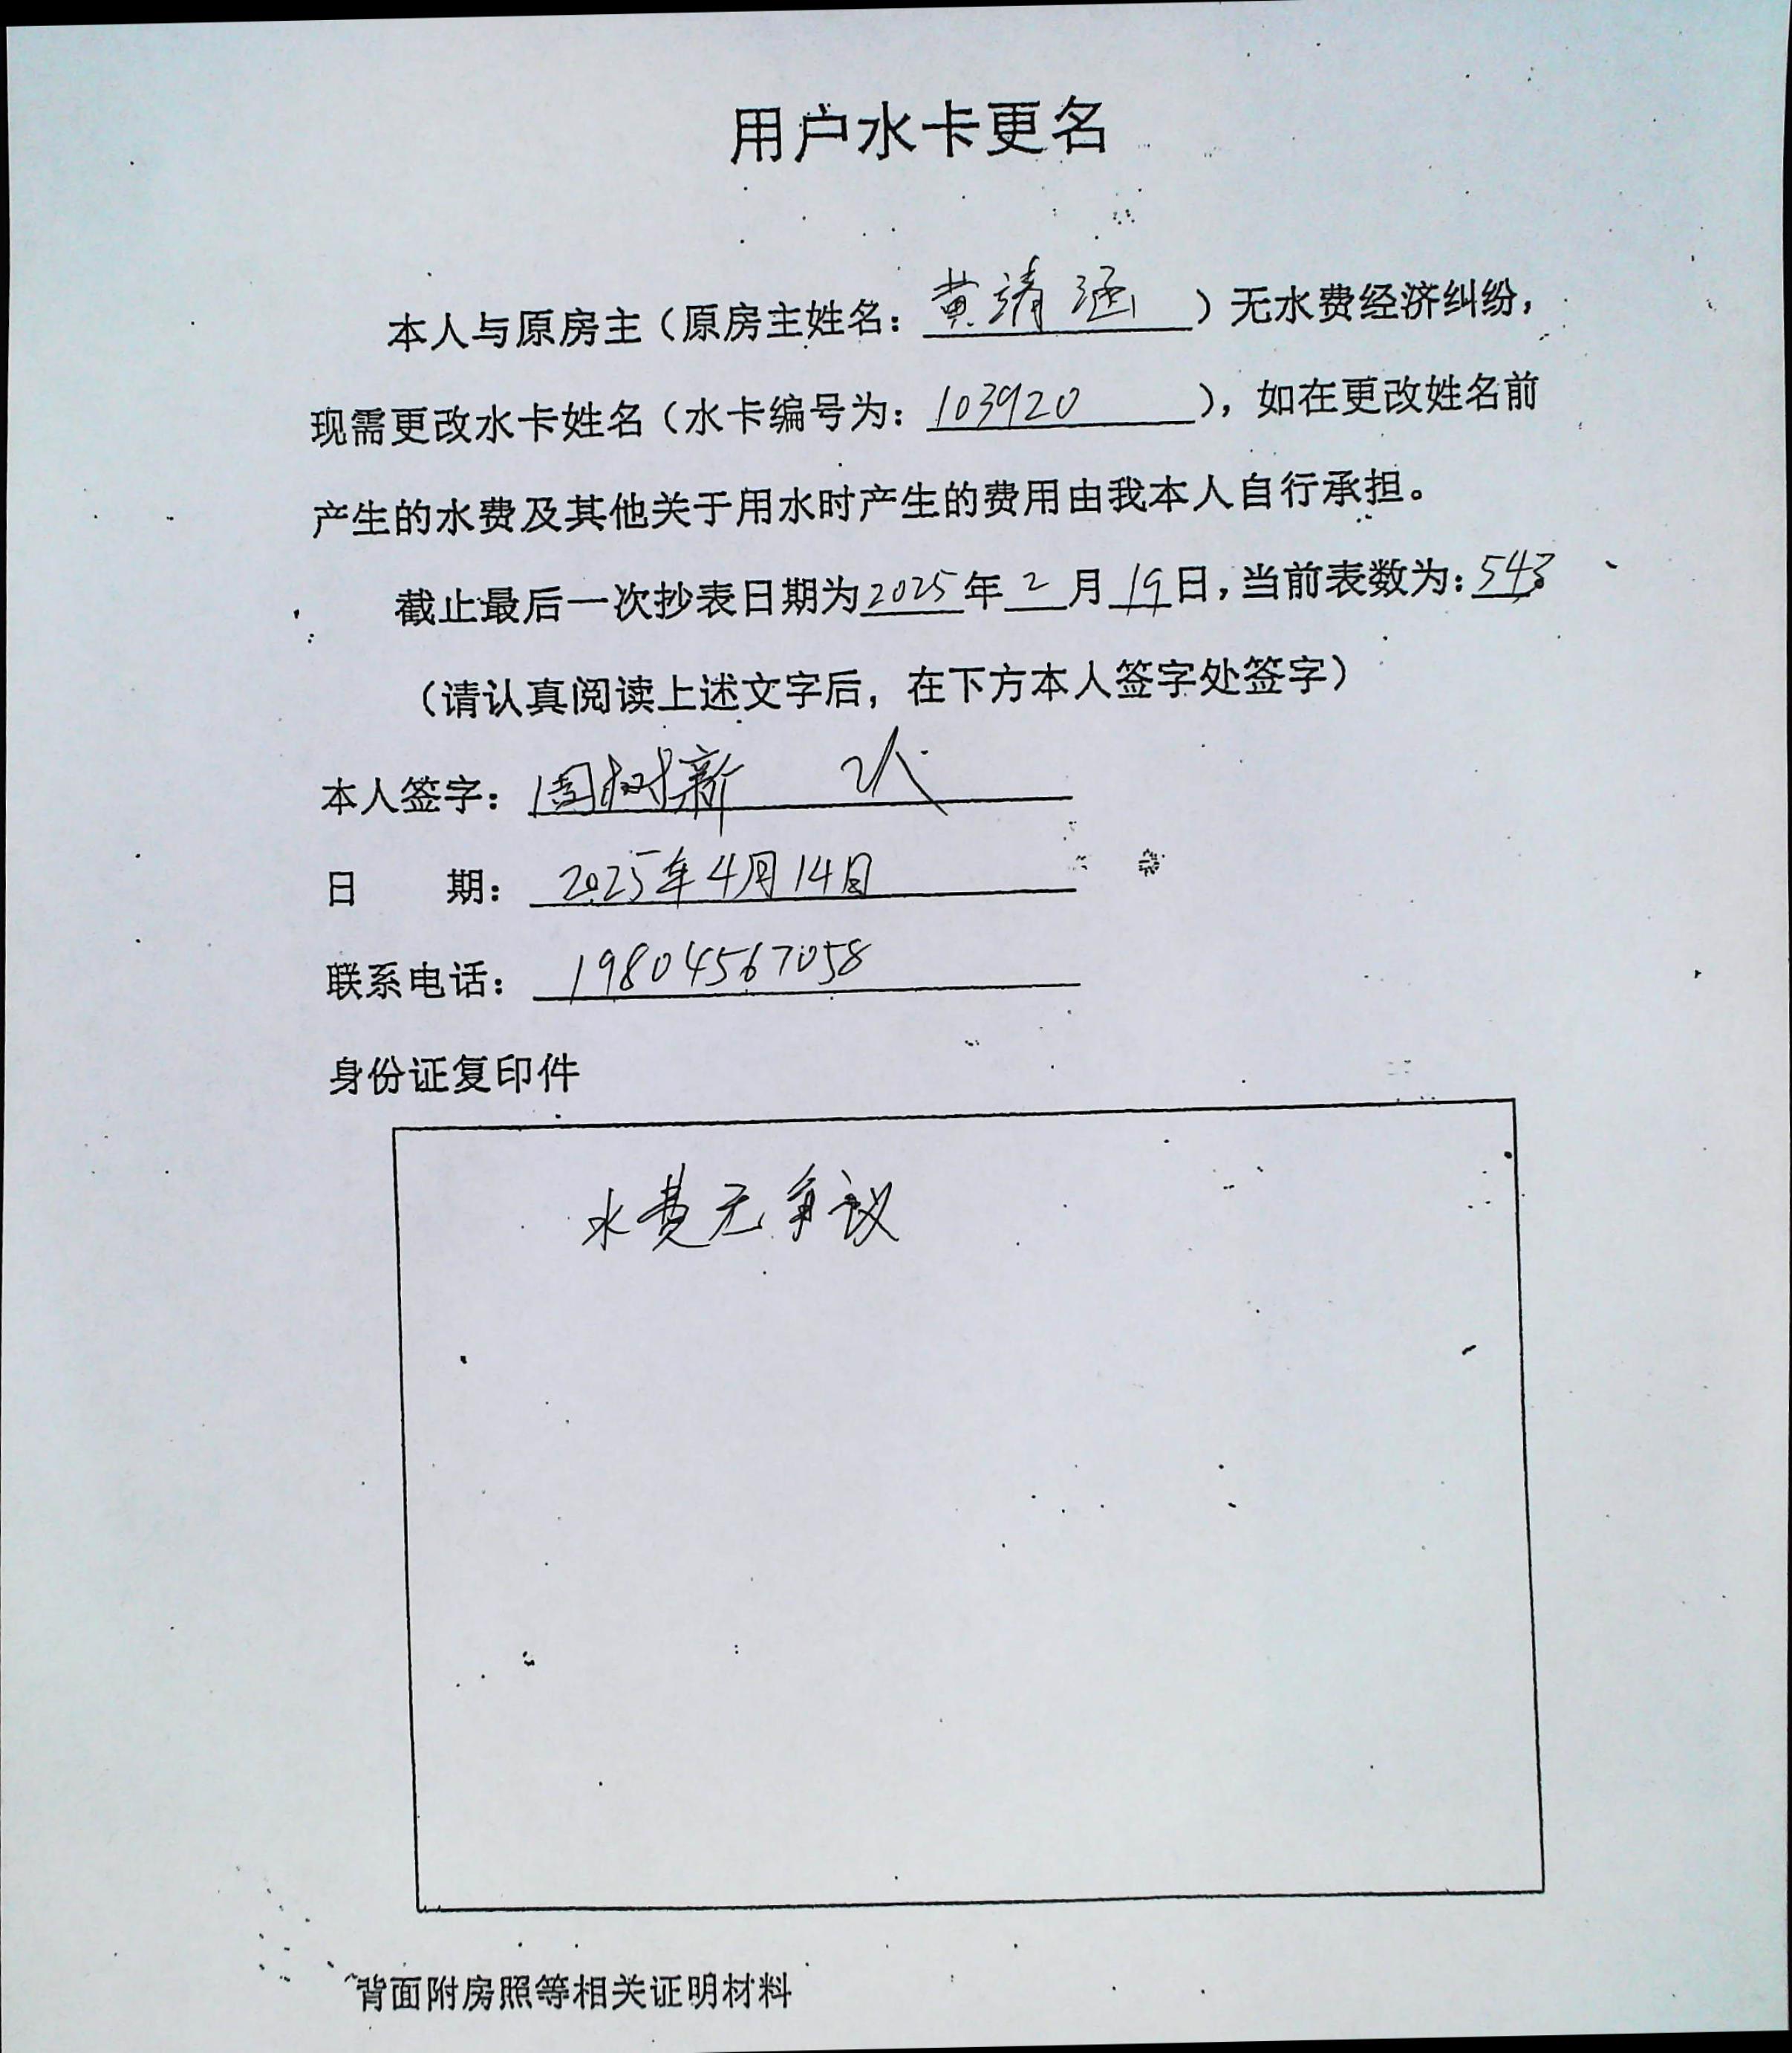 用户水卡更名
本人与原房主（原房主姓名：黄靖涵）无水费经济纠纷，
现需更改水卡姓名（水卡编号为：103920），如在更改姓名前
产生的水费及其他关于用水时产生的费用由我本人自行承担。
截止最后一次抄表日期为2025年2月19日，当前表数为：543
（请认真阅读上述文字后，在下方本人签字处签字）
本人签字：周树新 代
日 期：2025年4月14日
联系电话：19804567058
身份证复印件
水费无争议
背面附房照等相关证明材料